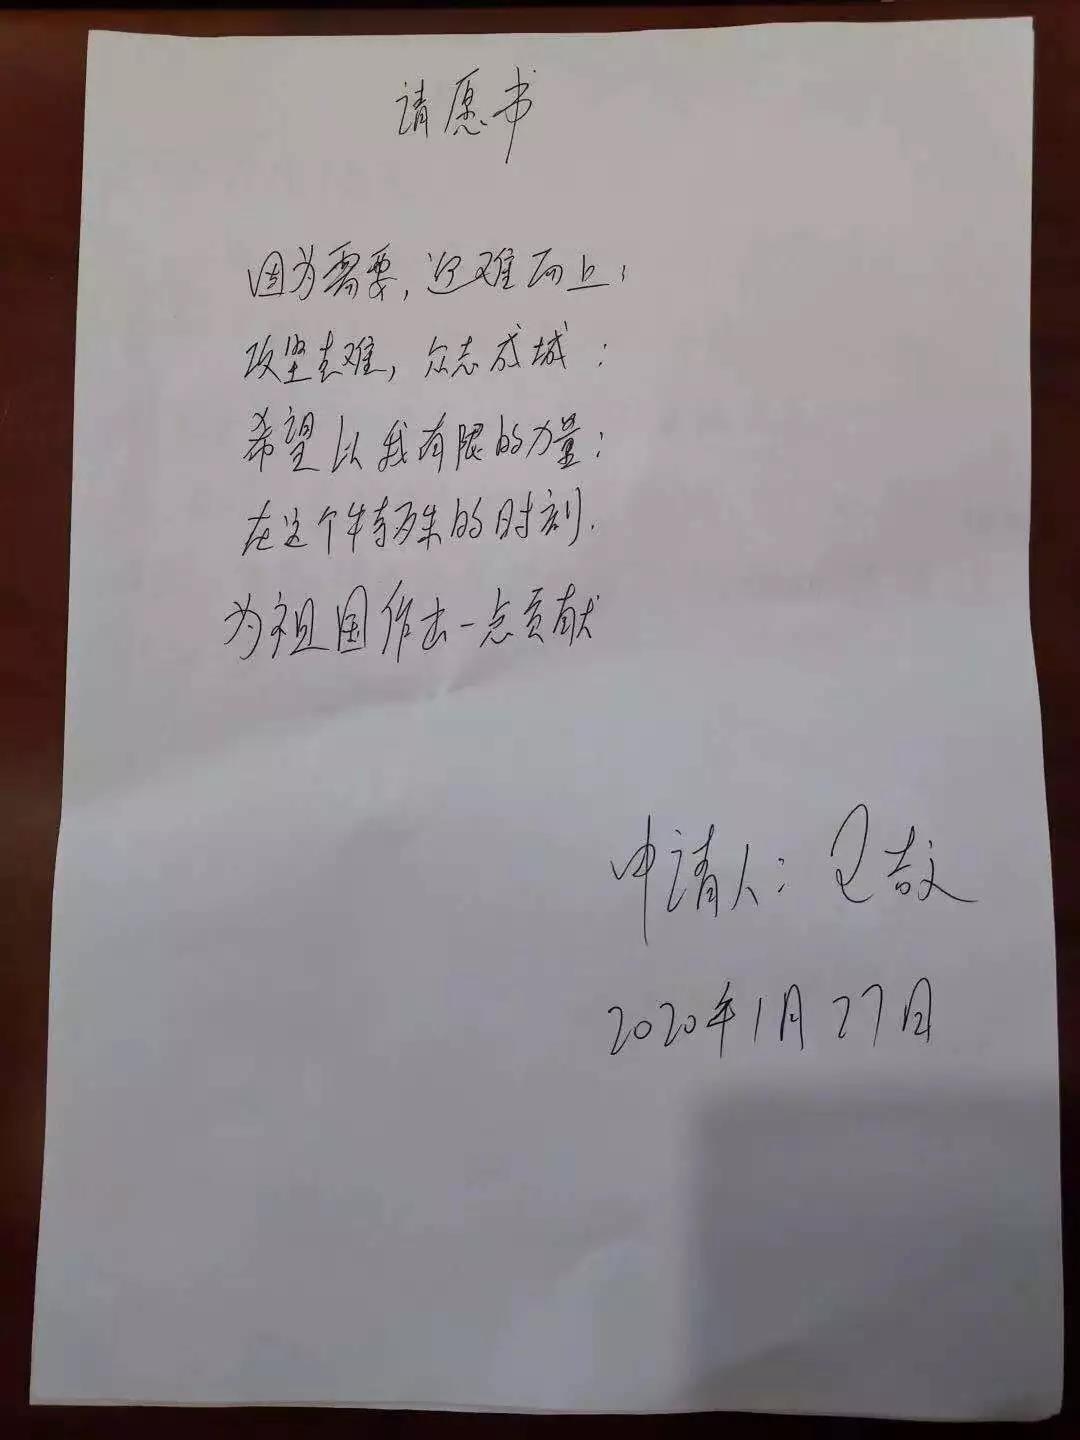 请愿书
因为需要，迎难而上；
攻坚克难，众志成城；
希望以我有限的力量；
在这个特殊的时刻.
为祖国作出一点贡献
申请人：
2020年1月27日